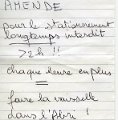 AMENDE
pour le stationnement
longtemps interdit
>2h !!
chaque heure en plus
faire la vaisselle
dans l'Abri !